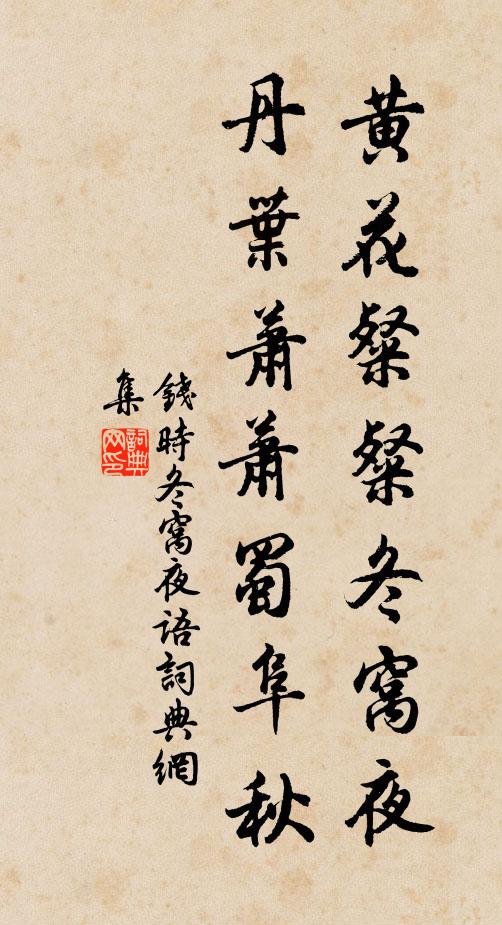 黄花粲粲冬窩夜
丹葉蕭蕭蜀阜秋
錢時冬窩夜语詞典網
集
詞典网印